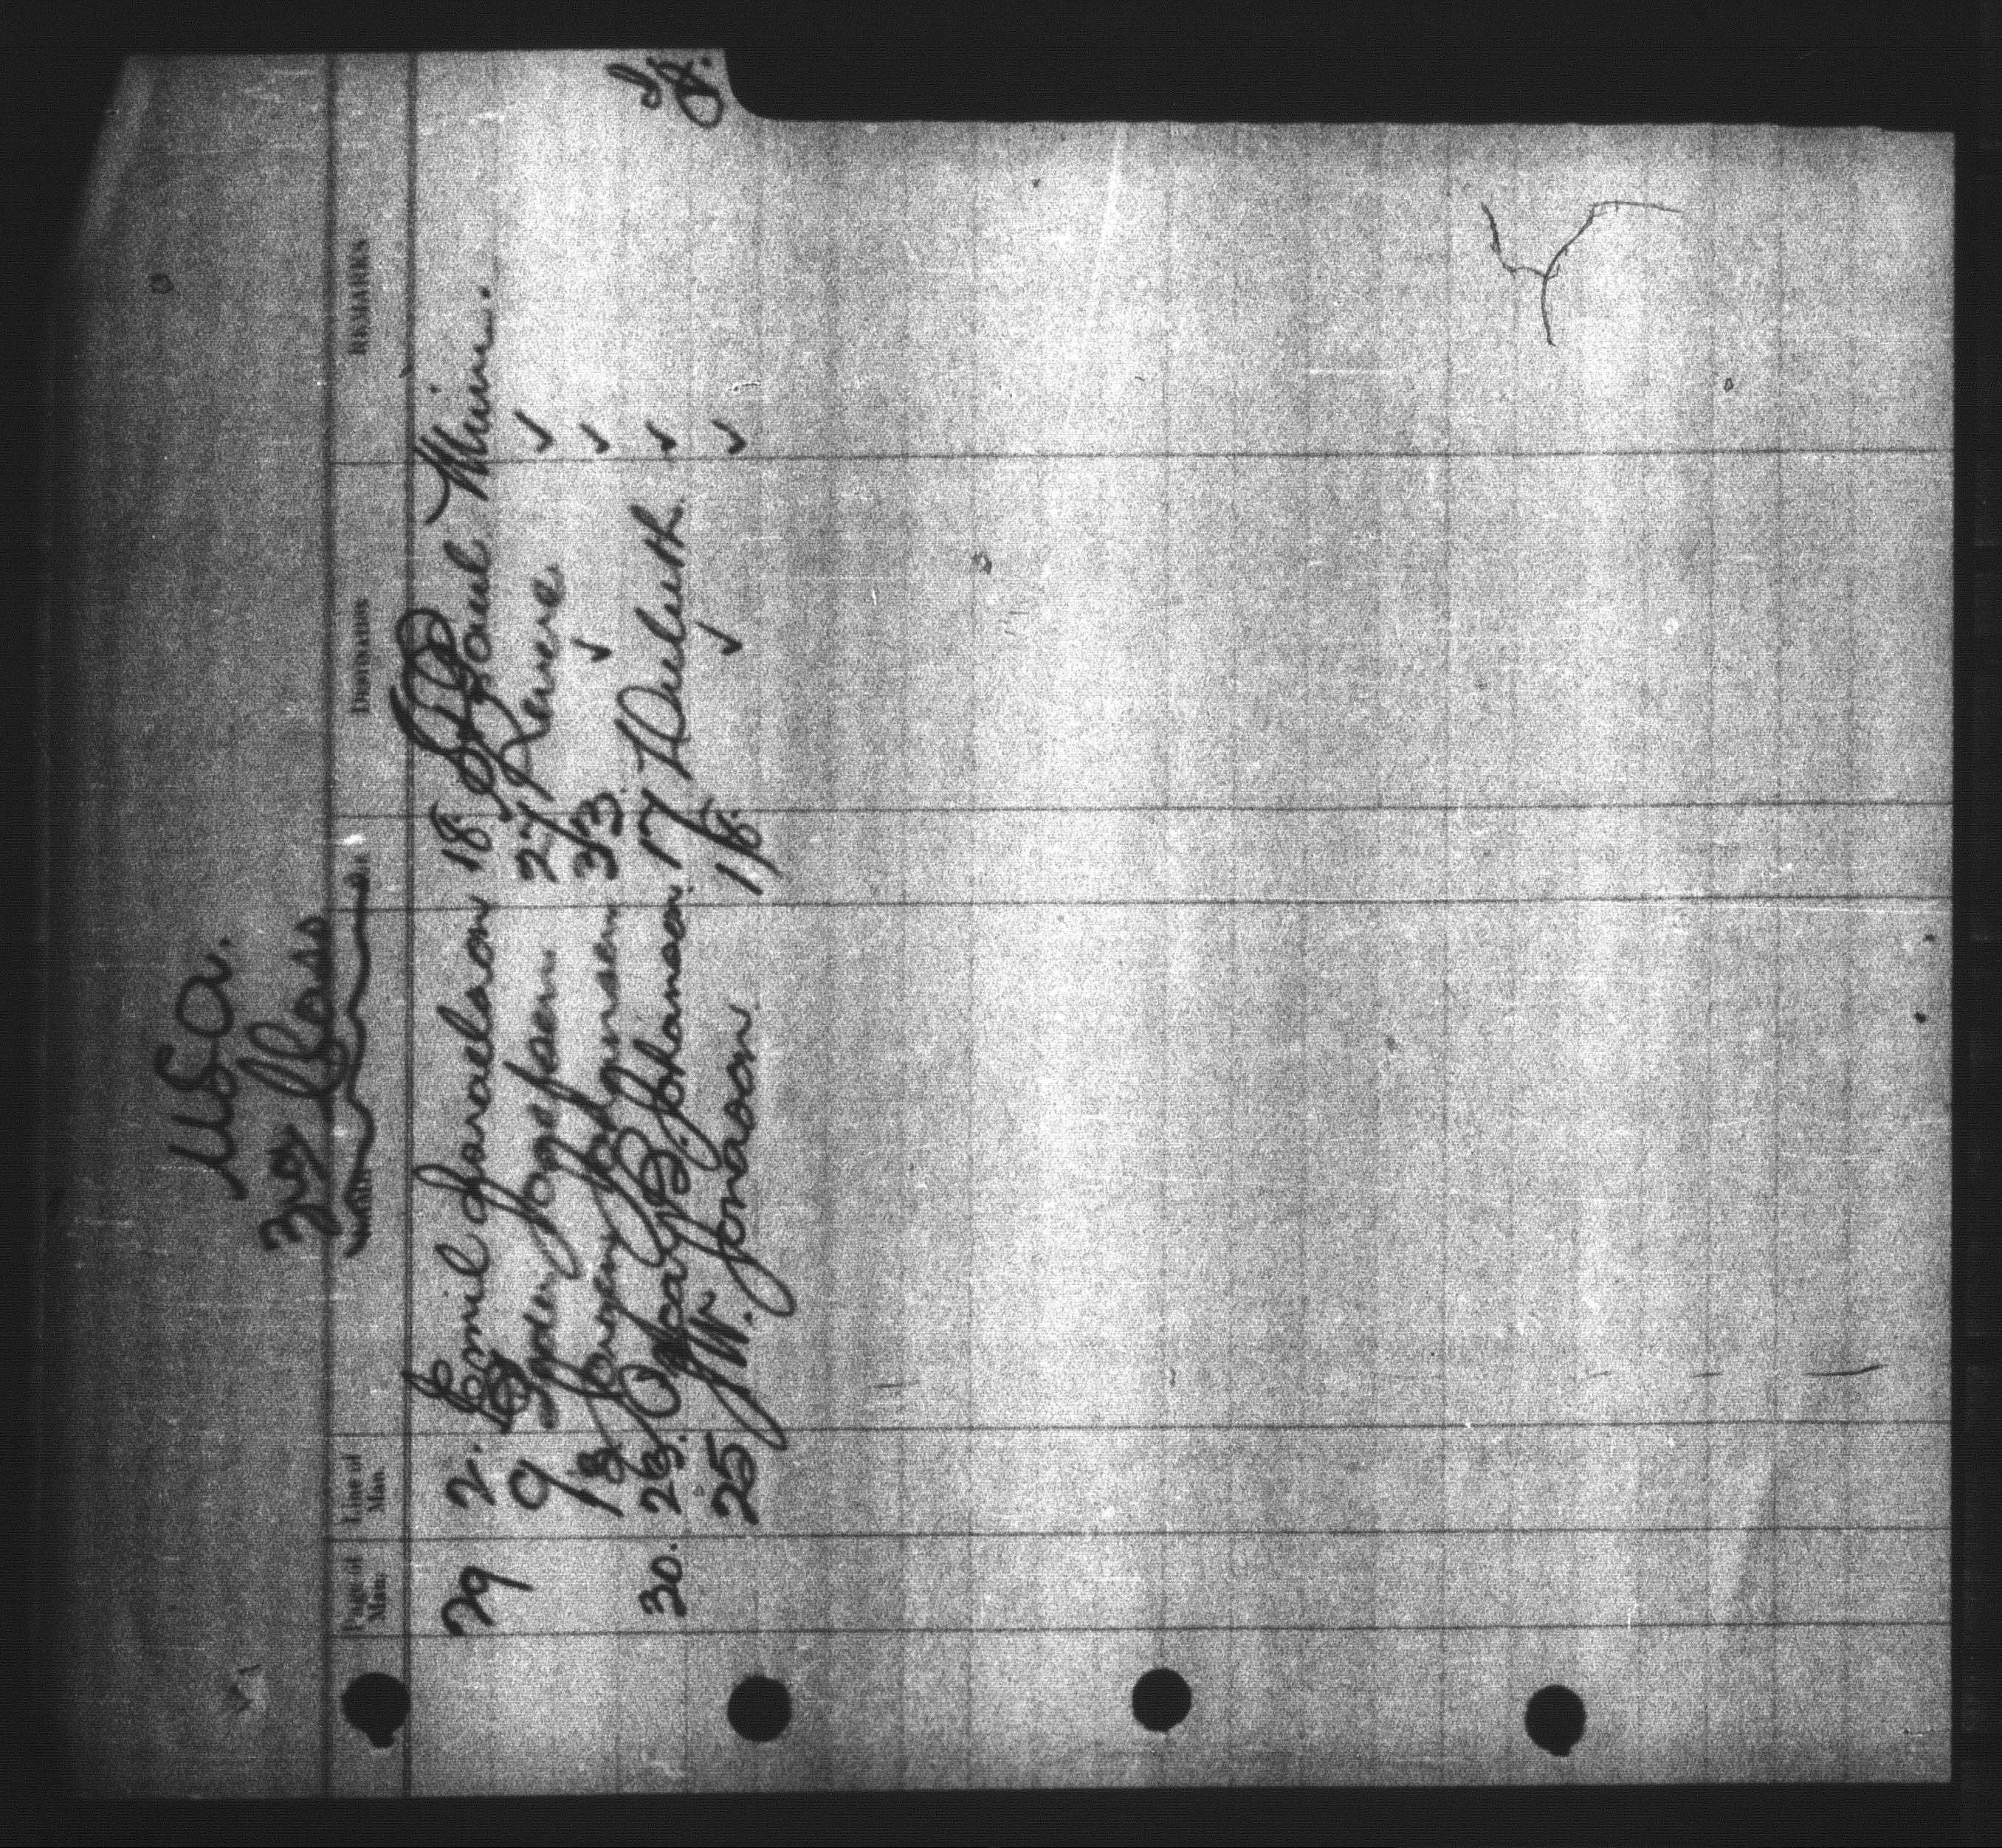 U.S.A.
3rd Class
Page of Man. Line of Man. NAME AGE DESTINATION REMARKS
29 2. Emil Israelson 18 St Paul Minn.
9 Jorgesen 27 Revere ✓
18 Jorgen Jorgensen 33. ✓ ✓
30. 23. Oskar B. Johanson 17 Duluth ✓
25 J. W. Jonason 18. ✓ ✓
I.
J.